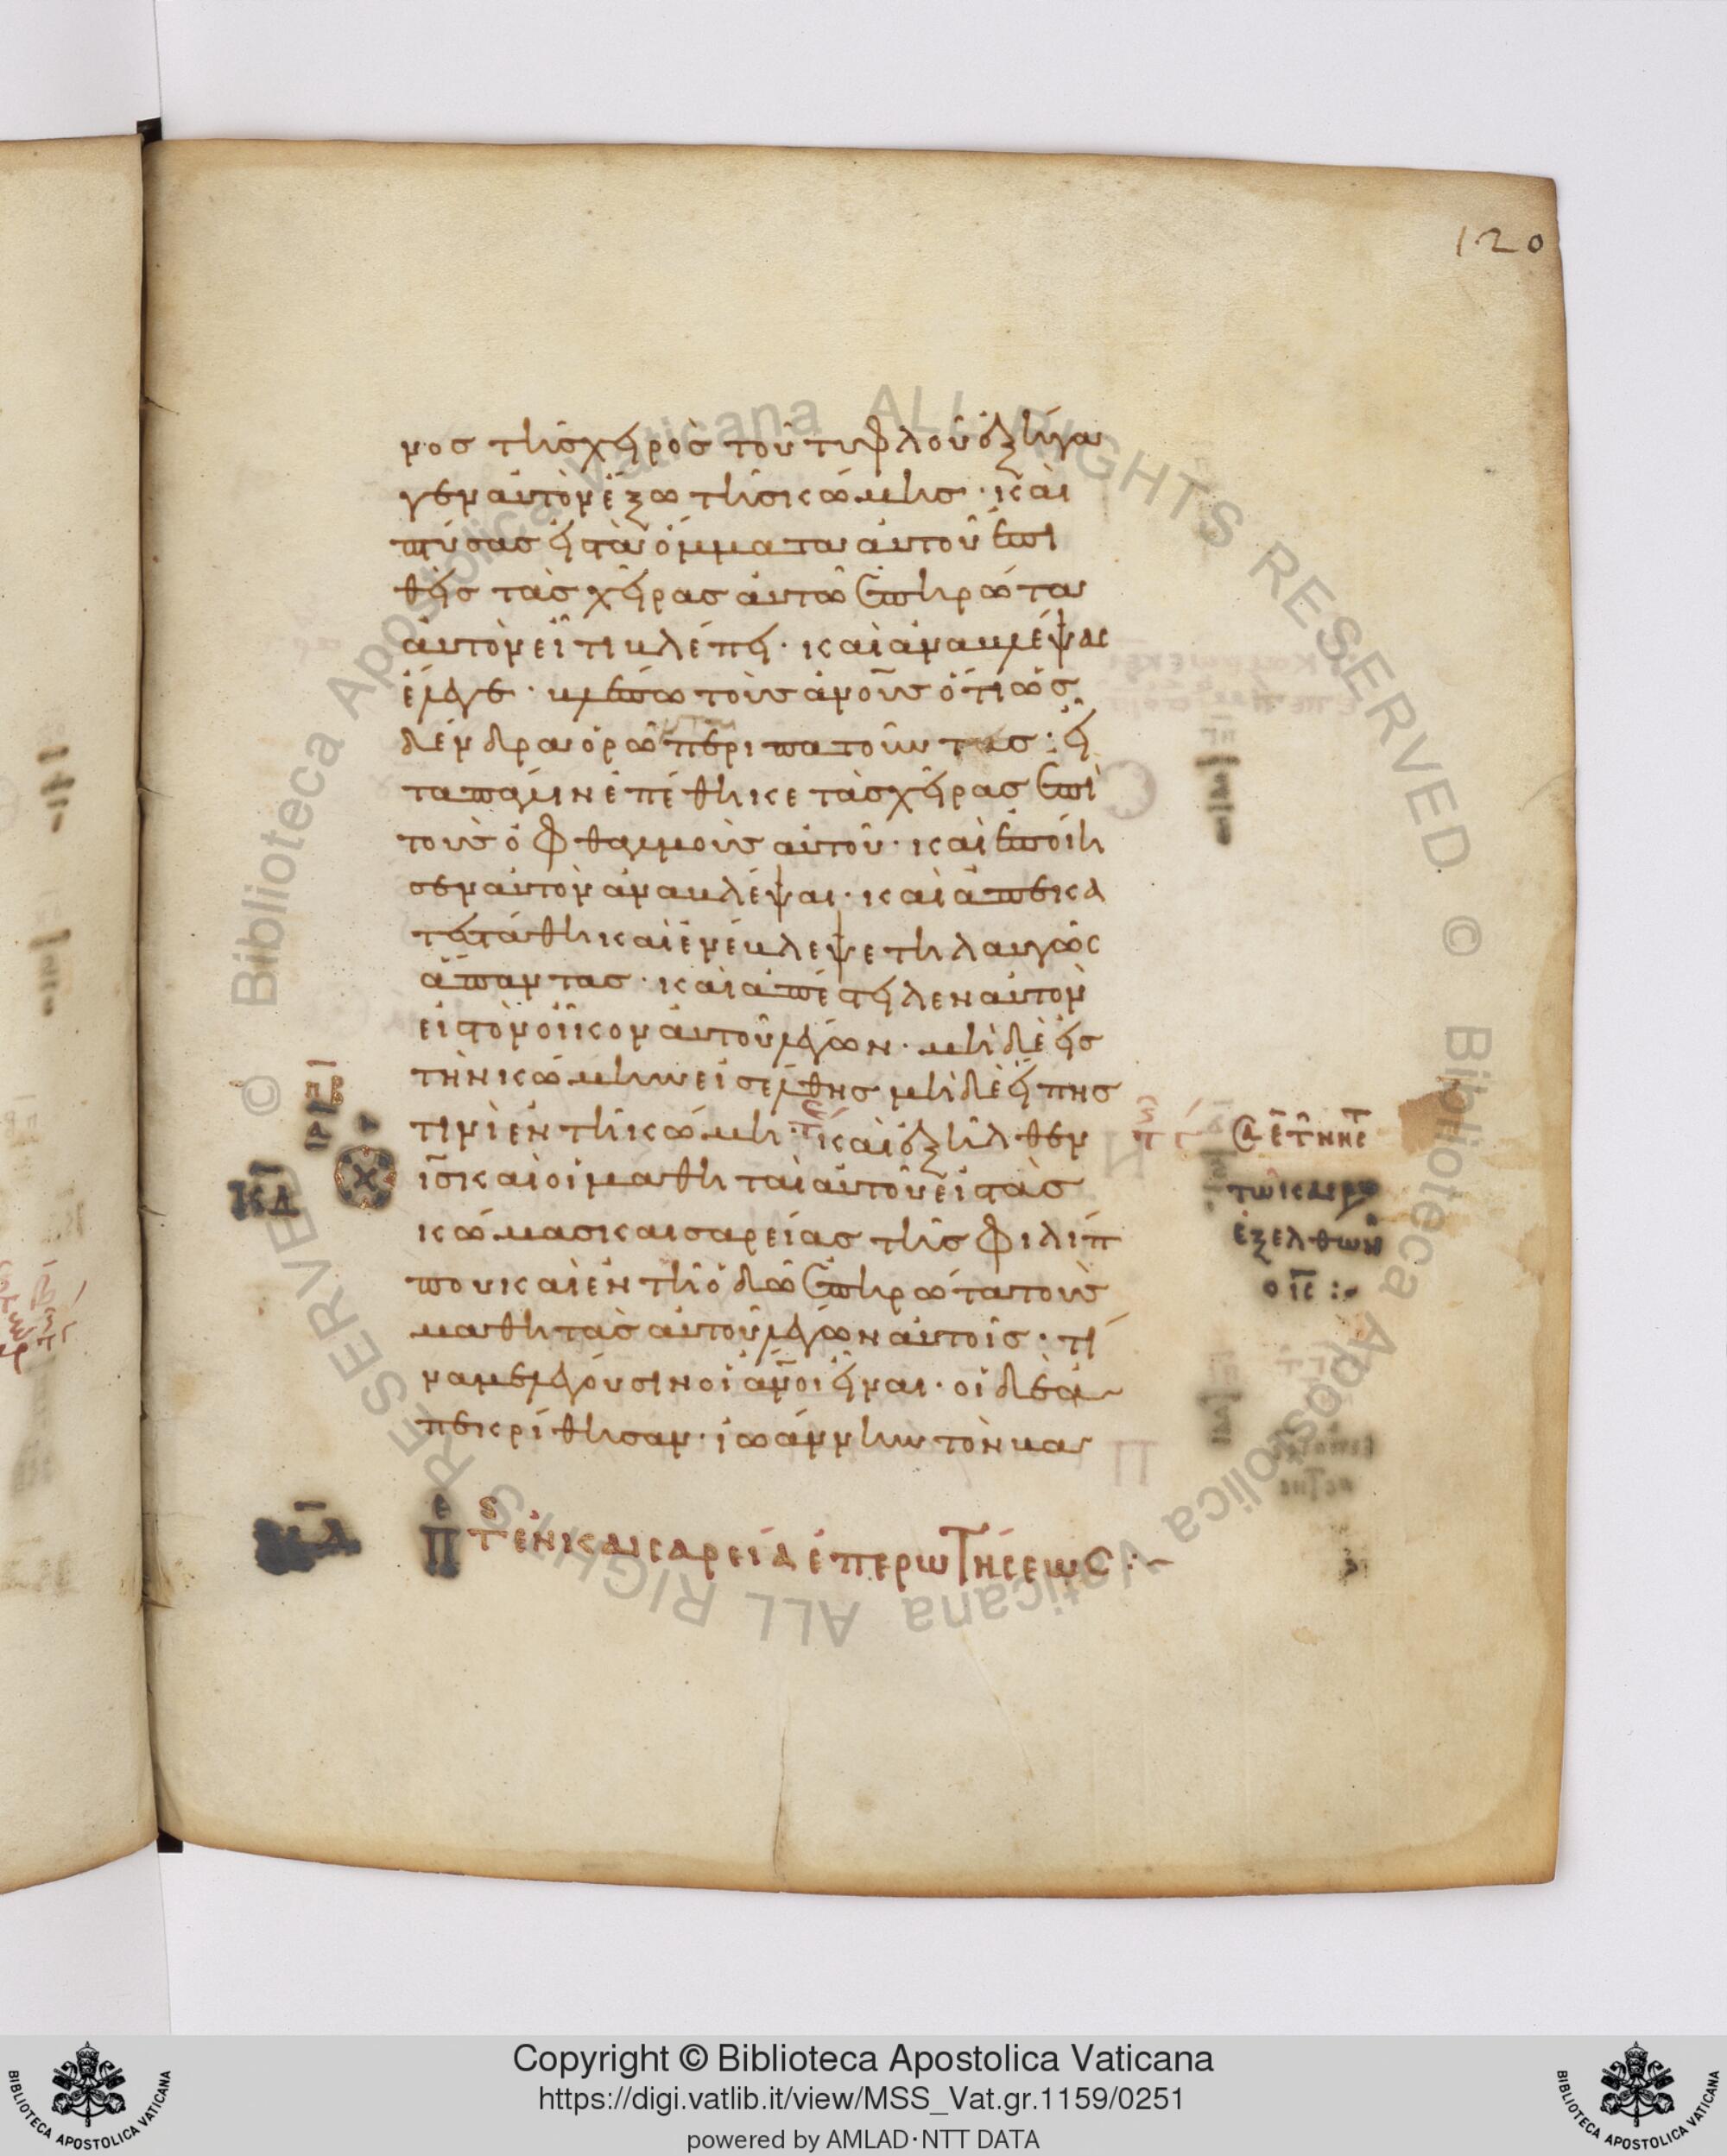 120
νος τῆς χειρὸς τοῦ τυφλοῦ ἐξήγα
γεν αὐτὸν ἔξω τῆς κώμης · καὶ
πτύσας εἰς τὰ ὄμματα αὐτοῦ ἐπι
θεὶς τὰς χεῖρας αὐτῶ ἐπηρώτα
αὐτὸν εἴ τι βλέπει · καὶ ἀναβλέψας
ἔλεγε · βλέπω τοὺς ἀνους ὅτι ὡς
δένδρα ὁρῶ περιπατοῦντας : εἶ
τα πάλιν ἐπέθηκε τὰς χεῖρας ἐπὶ
τοὺς ὀφθαλμοὺς αὐτοῦ · καὶ ἐποίη
σεν αὐτὸν ἀναβλέψαι · καὶ ἀποκα
τεστάθη καὶ ἐνέβλεψε τηλαυγῶς
ἅπαντας · καὶ ἀπέστειλεν αὐτὸν
εἰς τὸν οἶκον αὐτοῦ λέγων · μὴ δὲ εἰς
τὴν κώμην εἰσέλθης μὴ δὲ εἴπης
τινὶ ἐν τῆ κώμη · καὶ ἐξῆλθεν
ις καὶ οἱ μαθηταὶ αὐτοῦ εἰς τὰς
κώμας καισαρείας τῆς φιλίπ
που καὶ ἐν τῆ ὁδῶ ἐπηρώτα τοὺς
μαθητὰς αὐτοῦ λέγων αὐτοῖς · τί
να με λέγουσιν οἱ ἀνοι εἶναι · οἱ δὲ ἀ
πεκρίθησαν · ἰωάννην τὸν βα
ΚΔ
τῶ καιρῶ
ἐξελθων
ο ις :
τ ἐν καισαρεία ἐπερωτήσεως :
Copyright © Biblioteca Apostolica Vaticana
https://digi.vatlib.it/view/MSS_Vat.gr.1159/0251
powered by AMLAD·NTT DATA
BIBLIOTECA APOSTOLICA VATICANA
BIBLIOTECA APOSTOLICA VATICANA
© Biblioteca Apostolica Vaticana ALL RIGHTS RESERVED
© Biblioteca Apostolica Vaticana ALL RIGHTS RESERVED